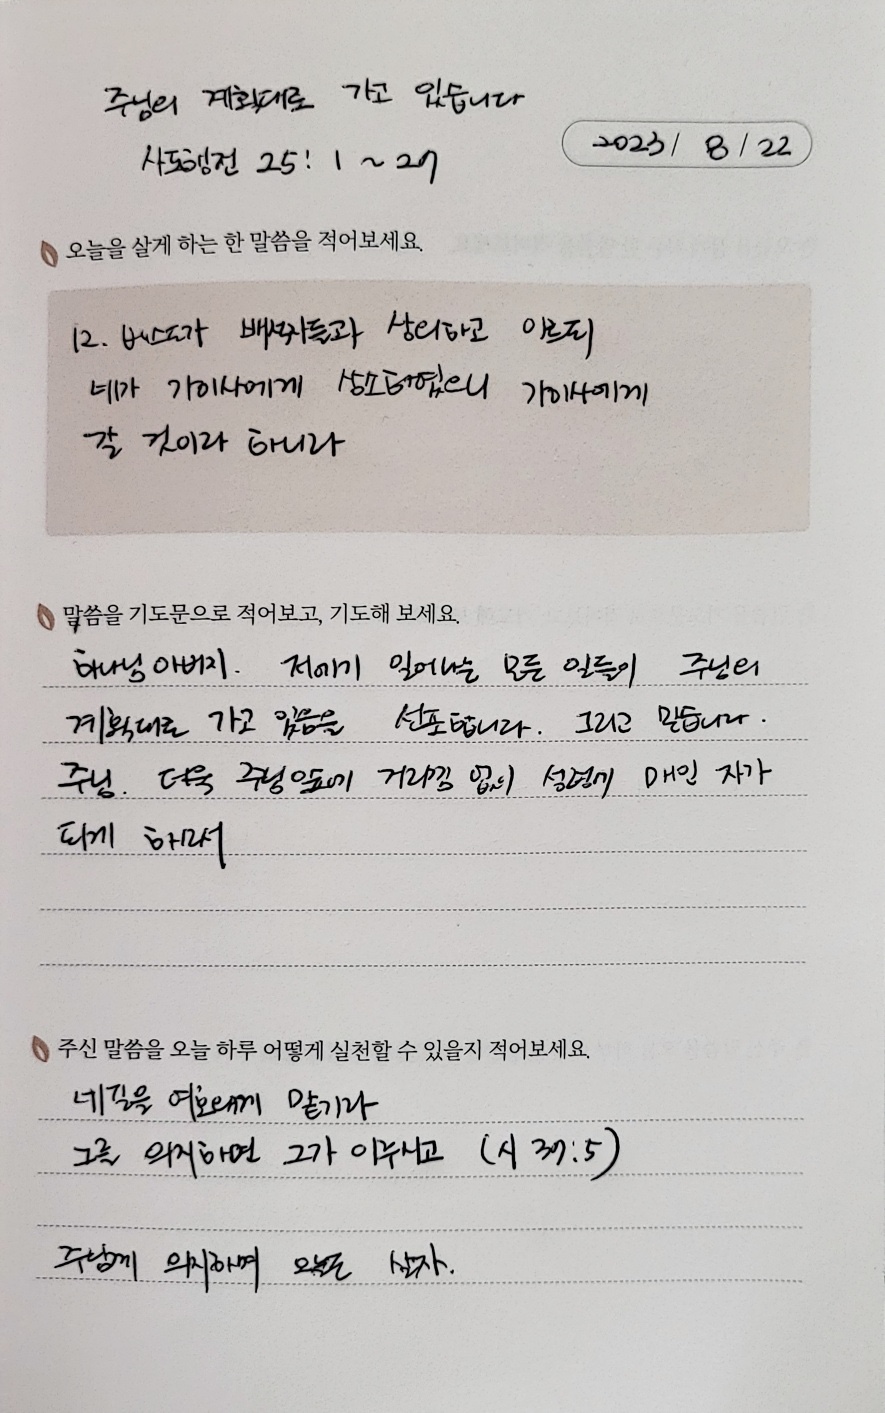 주님의 계획대로 가고 있습니다
사도행전 25:1~27
2023/ 8/22
오늘을 살게 하는 한 말씀을 적어보세요.
12. 베스도가 배석자들과 상의하고 이르되
네가 가이사에게 상소하였으니 가이사에게
갈 것이라 하니라
말씀을 기도문으로 적어보고, 기도해 보세요.
하나님 아버지. 저에게 일어나는 모든 일들이 주님의
계획대로 가고 있음을 선포합니다. 그리고 믿습니다.
주님. 더욱 주님앞에 거리낌 없이 성령에 매인 자가
되게 하소서
주신 말씀을 오늘 하루 어떻게 실천할 수 있을지 적어보세요.
네 길을 여호와께 맡기라
그를 의지하면 그가 이루시고 (시 37:5)
주님께 의지하며 오늘도 살자.